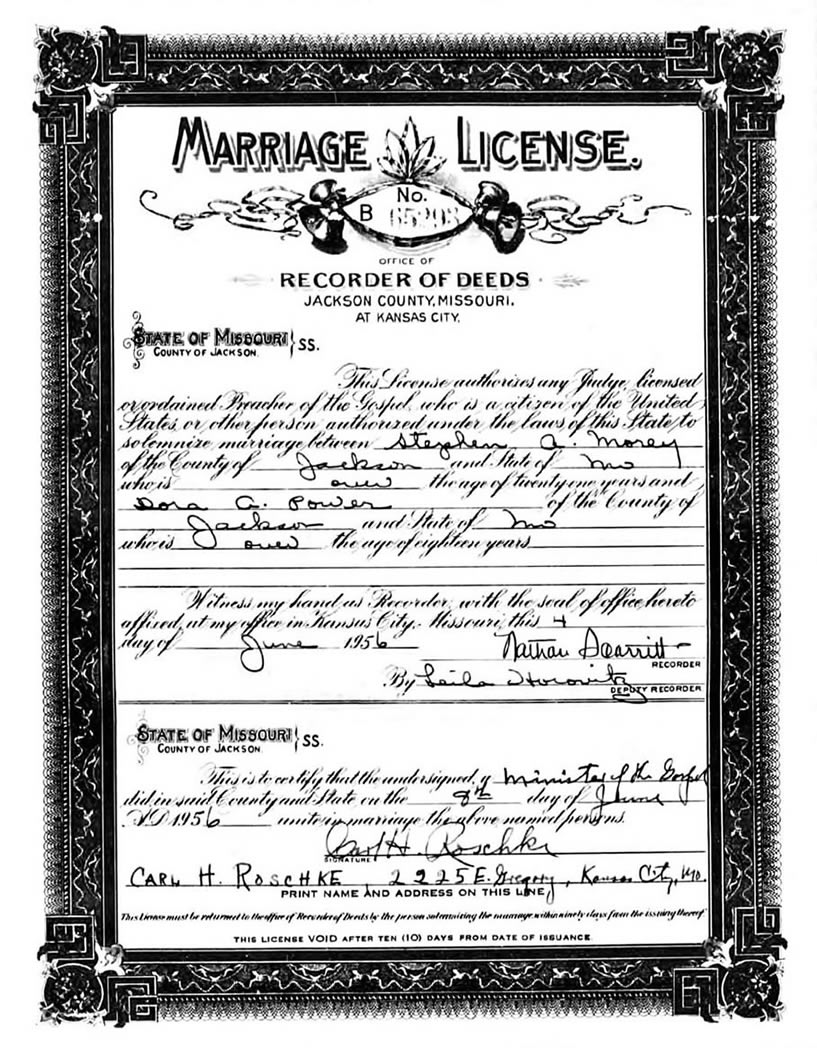 MARRIAGE LICENSE.
No.
B 65293
OFFICE OF
RECORDER OF DEEDS
JACKSON COUNTY, MISSOURI.
AT KANSAS CITY.
STATE OF MISSOURI
COUNTY OF JACKSON. } SS.
This License authorizes any Judge, licensed
or ordained Preacher of the Gospel, who is a citizen of the United
States, or other person authorized under the laws of this State, to
solemnize marriage between Stephen A. Morey
of the County of Jackson and State of Mo
who is over the age of twenty one years and
Dora A. Power of the County of
Jackson and State of Mo
who is over the age of eighteen years
Witness my hand as Recorder, with the seal of office hereto
affixed, at my office in Kansas City, Missouri, this 4
day of June 1956 Nathan Scarritt
RECORDER
By Leila Horowitz
DEPUTY RECORDER
STATE OF MISSOURI
COUNTY OF JACKSON } SS.
This is to certify that the undersigned, a Minister of the Gospel
did, in said County and State on the 8th day of June
A.D. 1956 unite in marriage the above named persons.
Carl H. Roschke
SIGNATURE
CARL H. ROSCHKE, 2225 E. Gregory, Kansas City, Mo.
PRINT NAME AND ADDRESS ON THIS LINE
This License must be returned to the office of Recorder of Deeds by the person solemnizing the marriage within ninety days from the issuing thereof
THIS LICENSE VOID AFTER TEN (10) DAYS FROM DATE OF ISSUANCE.